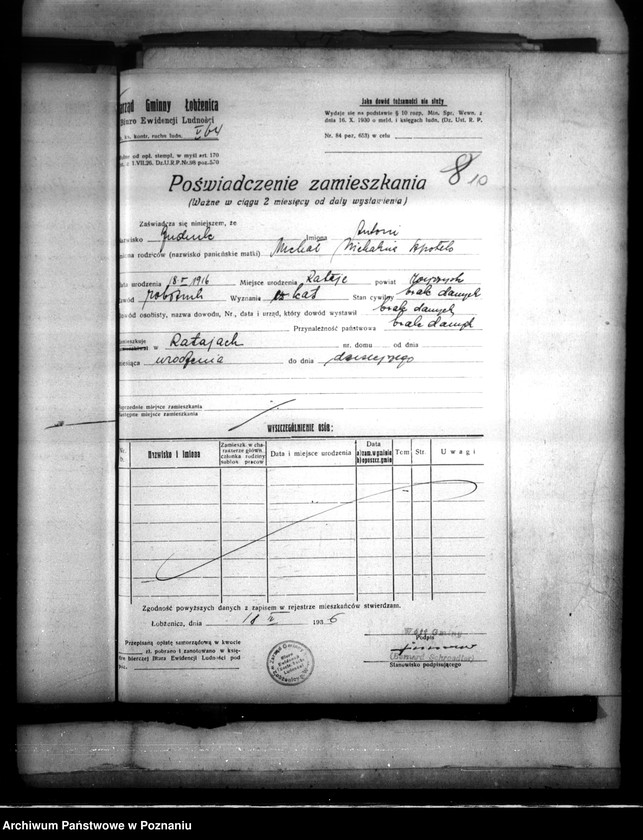 rząd Gminy Łobżenica
Biuro Ewidencji Ludności
kontr. ruchu ludn.
od opł. stempl. w myśl art. 170
z 1.VII.26. Dz.U.R.P.Nr.98 poz.570
Jako dowód tożsamości nie służy
Wydaje się na podstawie § 10 rozp. Min. Spr. Wewn. z
dnia 16. X. 1930 o meld. i księgach ludn. (Dz. Ust. R. P.
Nr. 84 poz. 653) w celu
8 10
Poświadczenie zamieszkania
(Ważne w ciągu 2 miesięcy od daty wystawienia)
Zaświadcza się niniejszem, że
Imiona Antoni
rodziców (nazwisko panieńskie matki) Michał
urodzenia 18 V 1916 Miejsce urodzenia Rataje powiat Wyrzysk
Wyznania kat Stan cywilny brak danych
osobisty, nazwa dowodu, Nr., data i urząd, który dowód wystawił brak danych
Przynależność państwowa brak danych
w Ratajach nr. domu od dnia
urodzenia do dnia dzisiejszego
poprzednie miejsce zamieszkania
następne miejsce zamieszkania
WYSZCZEGÓLNIENIE OSÓB:
Nazwisko i imiona
Zamieszk. w cha-
rakterze główn.
członka rodziny
sublok. pracow.
Data i miejsce urodzenia
Data
a) zam. w gminie
b) opuszcz. gminę
Tom
Str.
Uwagi
Zgodność powyższych danych z zapisem w rejestrze mieszkańców stwierdzam.
Łobżenica, dnia 18 V 1936
Przepisaną opłatę samorządową w kwocie
zł. pobrano i zanotowano w księ-
bierczej Biura Ewidencji Ludności pod
Wójt Gminy
Podpis
Stanowisko podpisującego
Archiwum Państwowe w Poznaniu